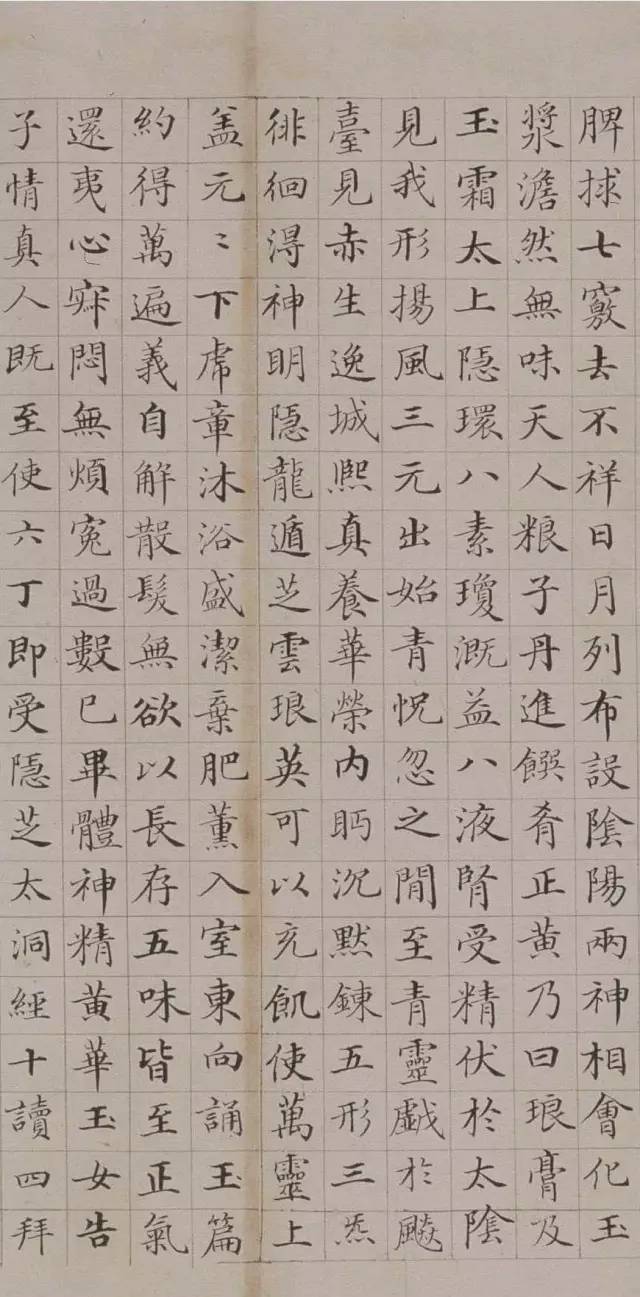 脾救七竅去不祥日月列布設陰陽兩神相會化玉
漿澹然無味天人粮子丹進饌肴正黃乃曰琅膏及
玉霜太上隱環八素瓊溉益八液腎受精伏於太陰
見我形揚風三元出始青怳忽之間至青靈戲於飈
臺見赤生逸城熈真養華榮內眄沉默鍊五形三炁
徘徊淂神明隱龍遁芝雲琅英可以充飢使萬靈上
盖元〻下虎章沐浴盛潔棄肥薰入室東向誦玉篇
約得萬遍義自解散髮無欲以長存五味皆至正氣
還夷心寂悶無煩冤過數已畢體神精黃華玉女告
子情真人既至使六丁即受隱芝太洞經十讀四拜